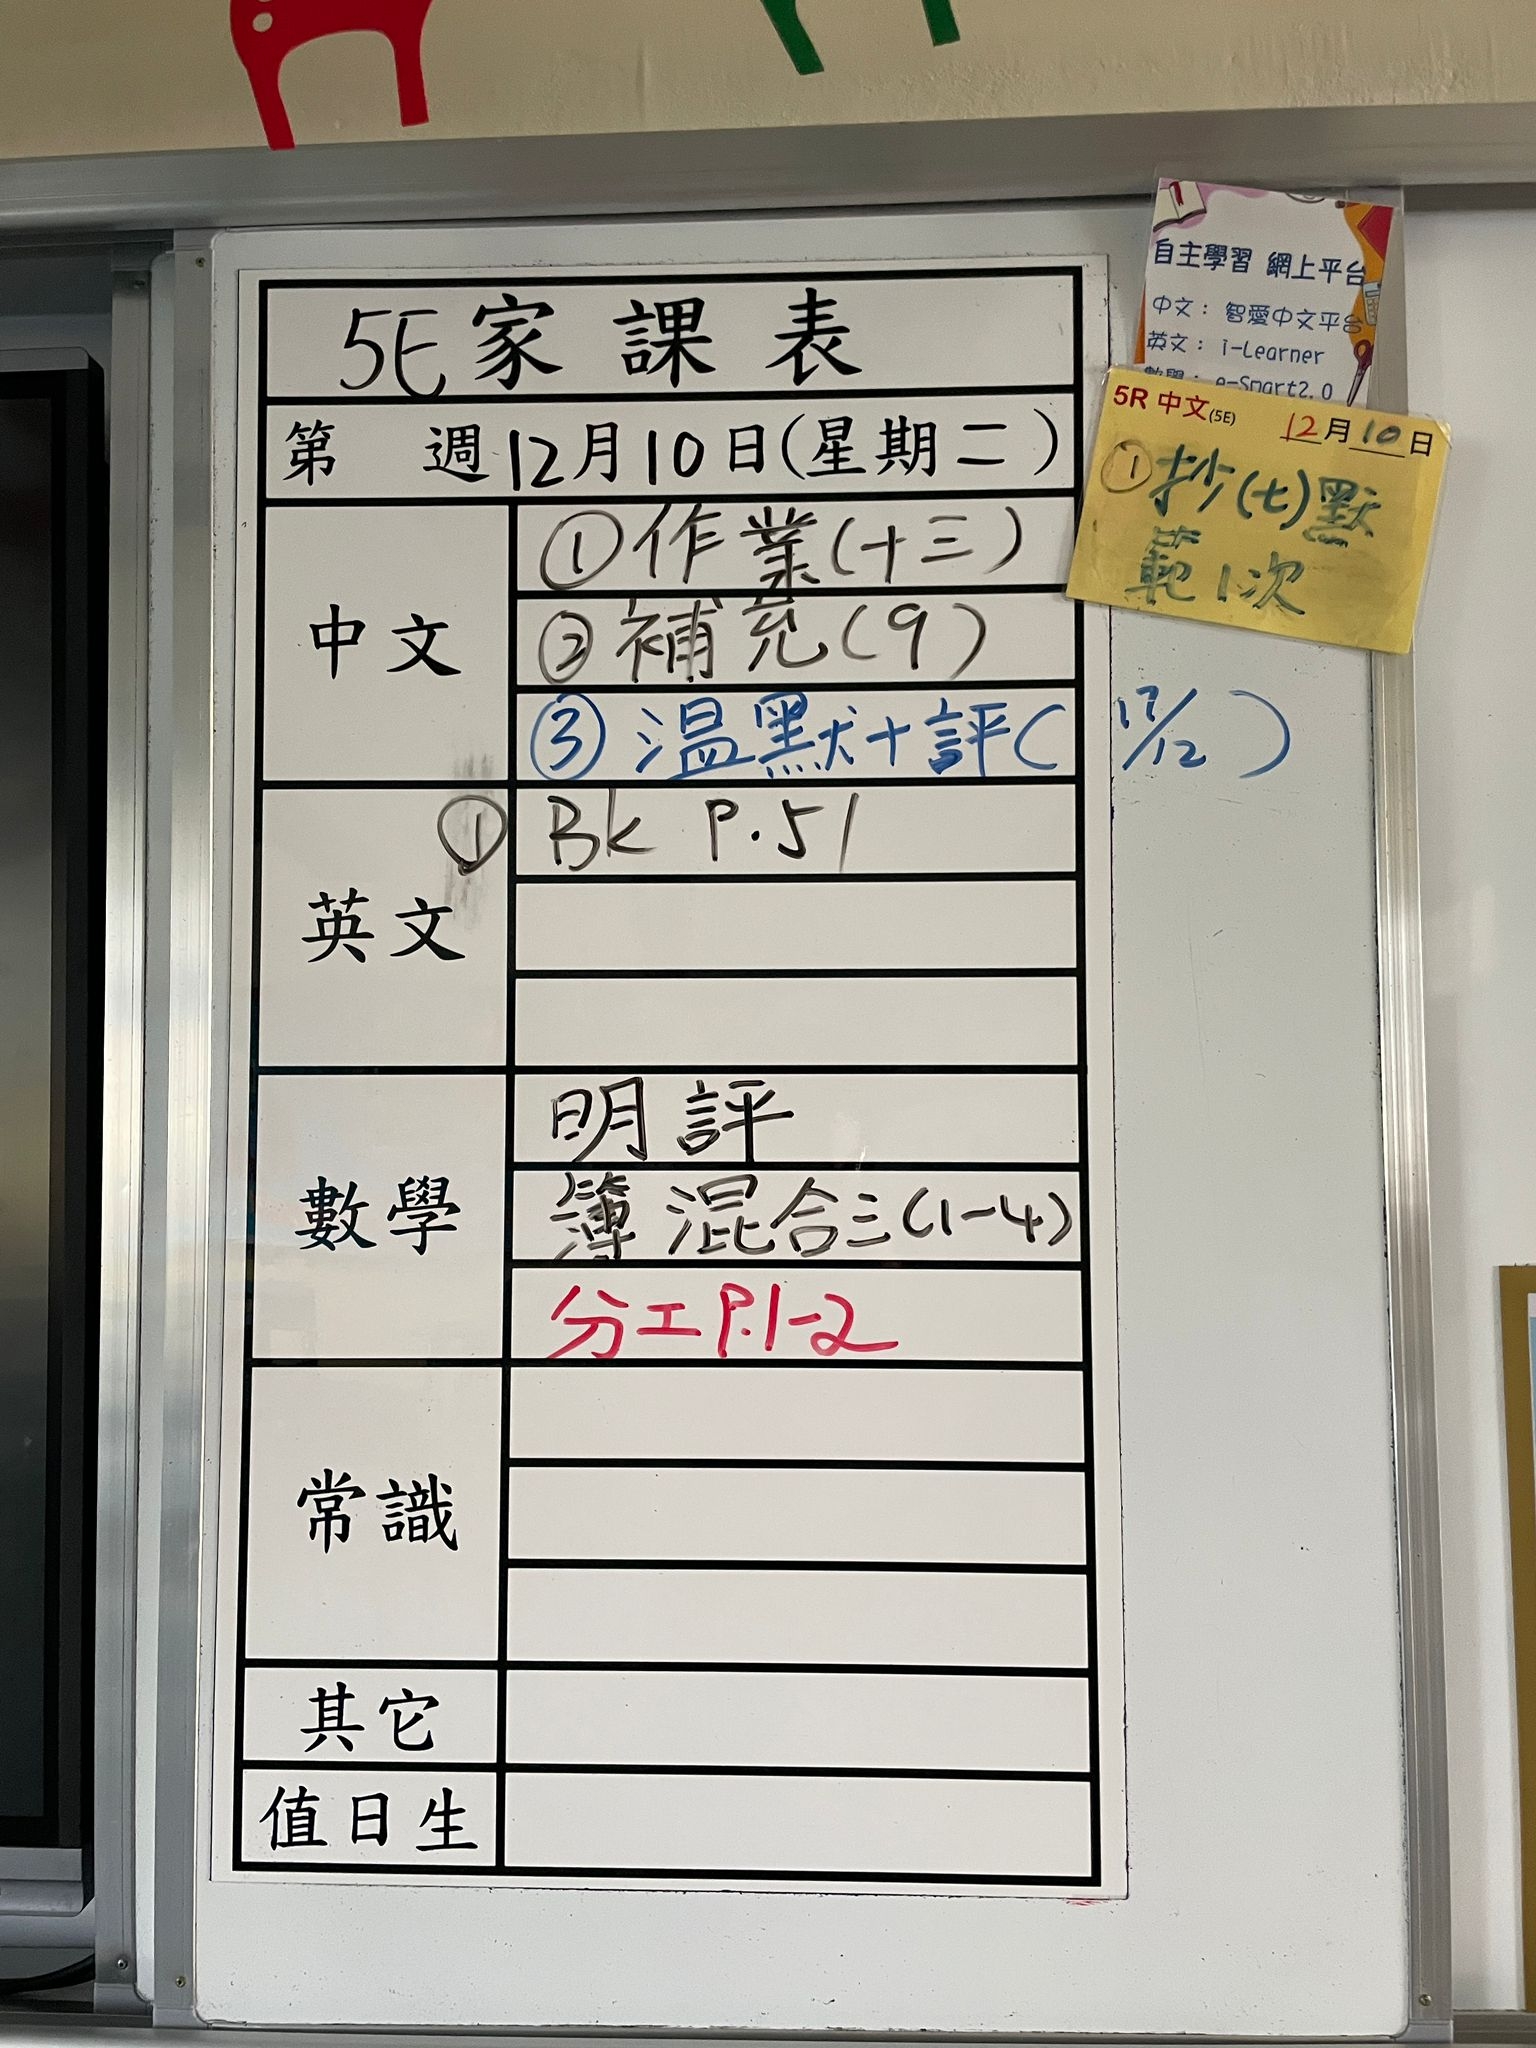 5E家課表
第 週12月10日(星期二)
中文
①作業(十三)
②補充(9)
③溫默+評(17/12)
英文
① Bk P.51
數學
明評
簿 混合三(1-4)
分工P.1-2
常識
其它
值日生
自主學習 網上平台
中文： 智愛中文平台
英文： i-Learner
數學： e-Smart2.0
5R 中文(5E) 12月10日
①抄(七)默
範1次